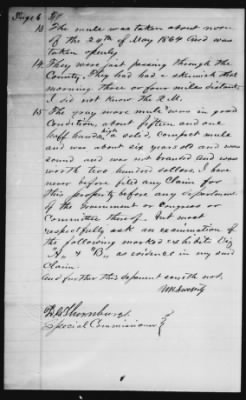 Page 6
13 The mule was taken about noon
of the 24th of May 1864 And was
taken openly
14 They were just passing through the
County. They had had a skirmish that
morning three or four miles distant.
I did not know the Q.M.
15 The gray mare mule was in good
Condition, about fifteen and one
half hands high a solid, compact mule
and was about six years old and was
sound and was not branded and was
worth two hundred dollars. I have
never before filed any Claim for
this property before any department
of the Government or Congress or
Committee thereof. But most
respectfully ask an examination of
the following marked exhibits Viz
"A" & "B" as evidence in my said
Claim.
And further this deponent saith not.
Special Commissioner